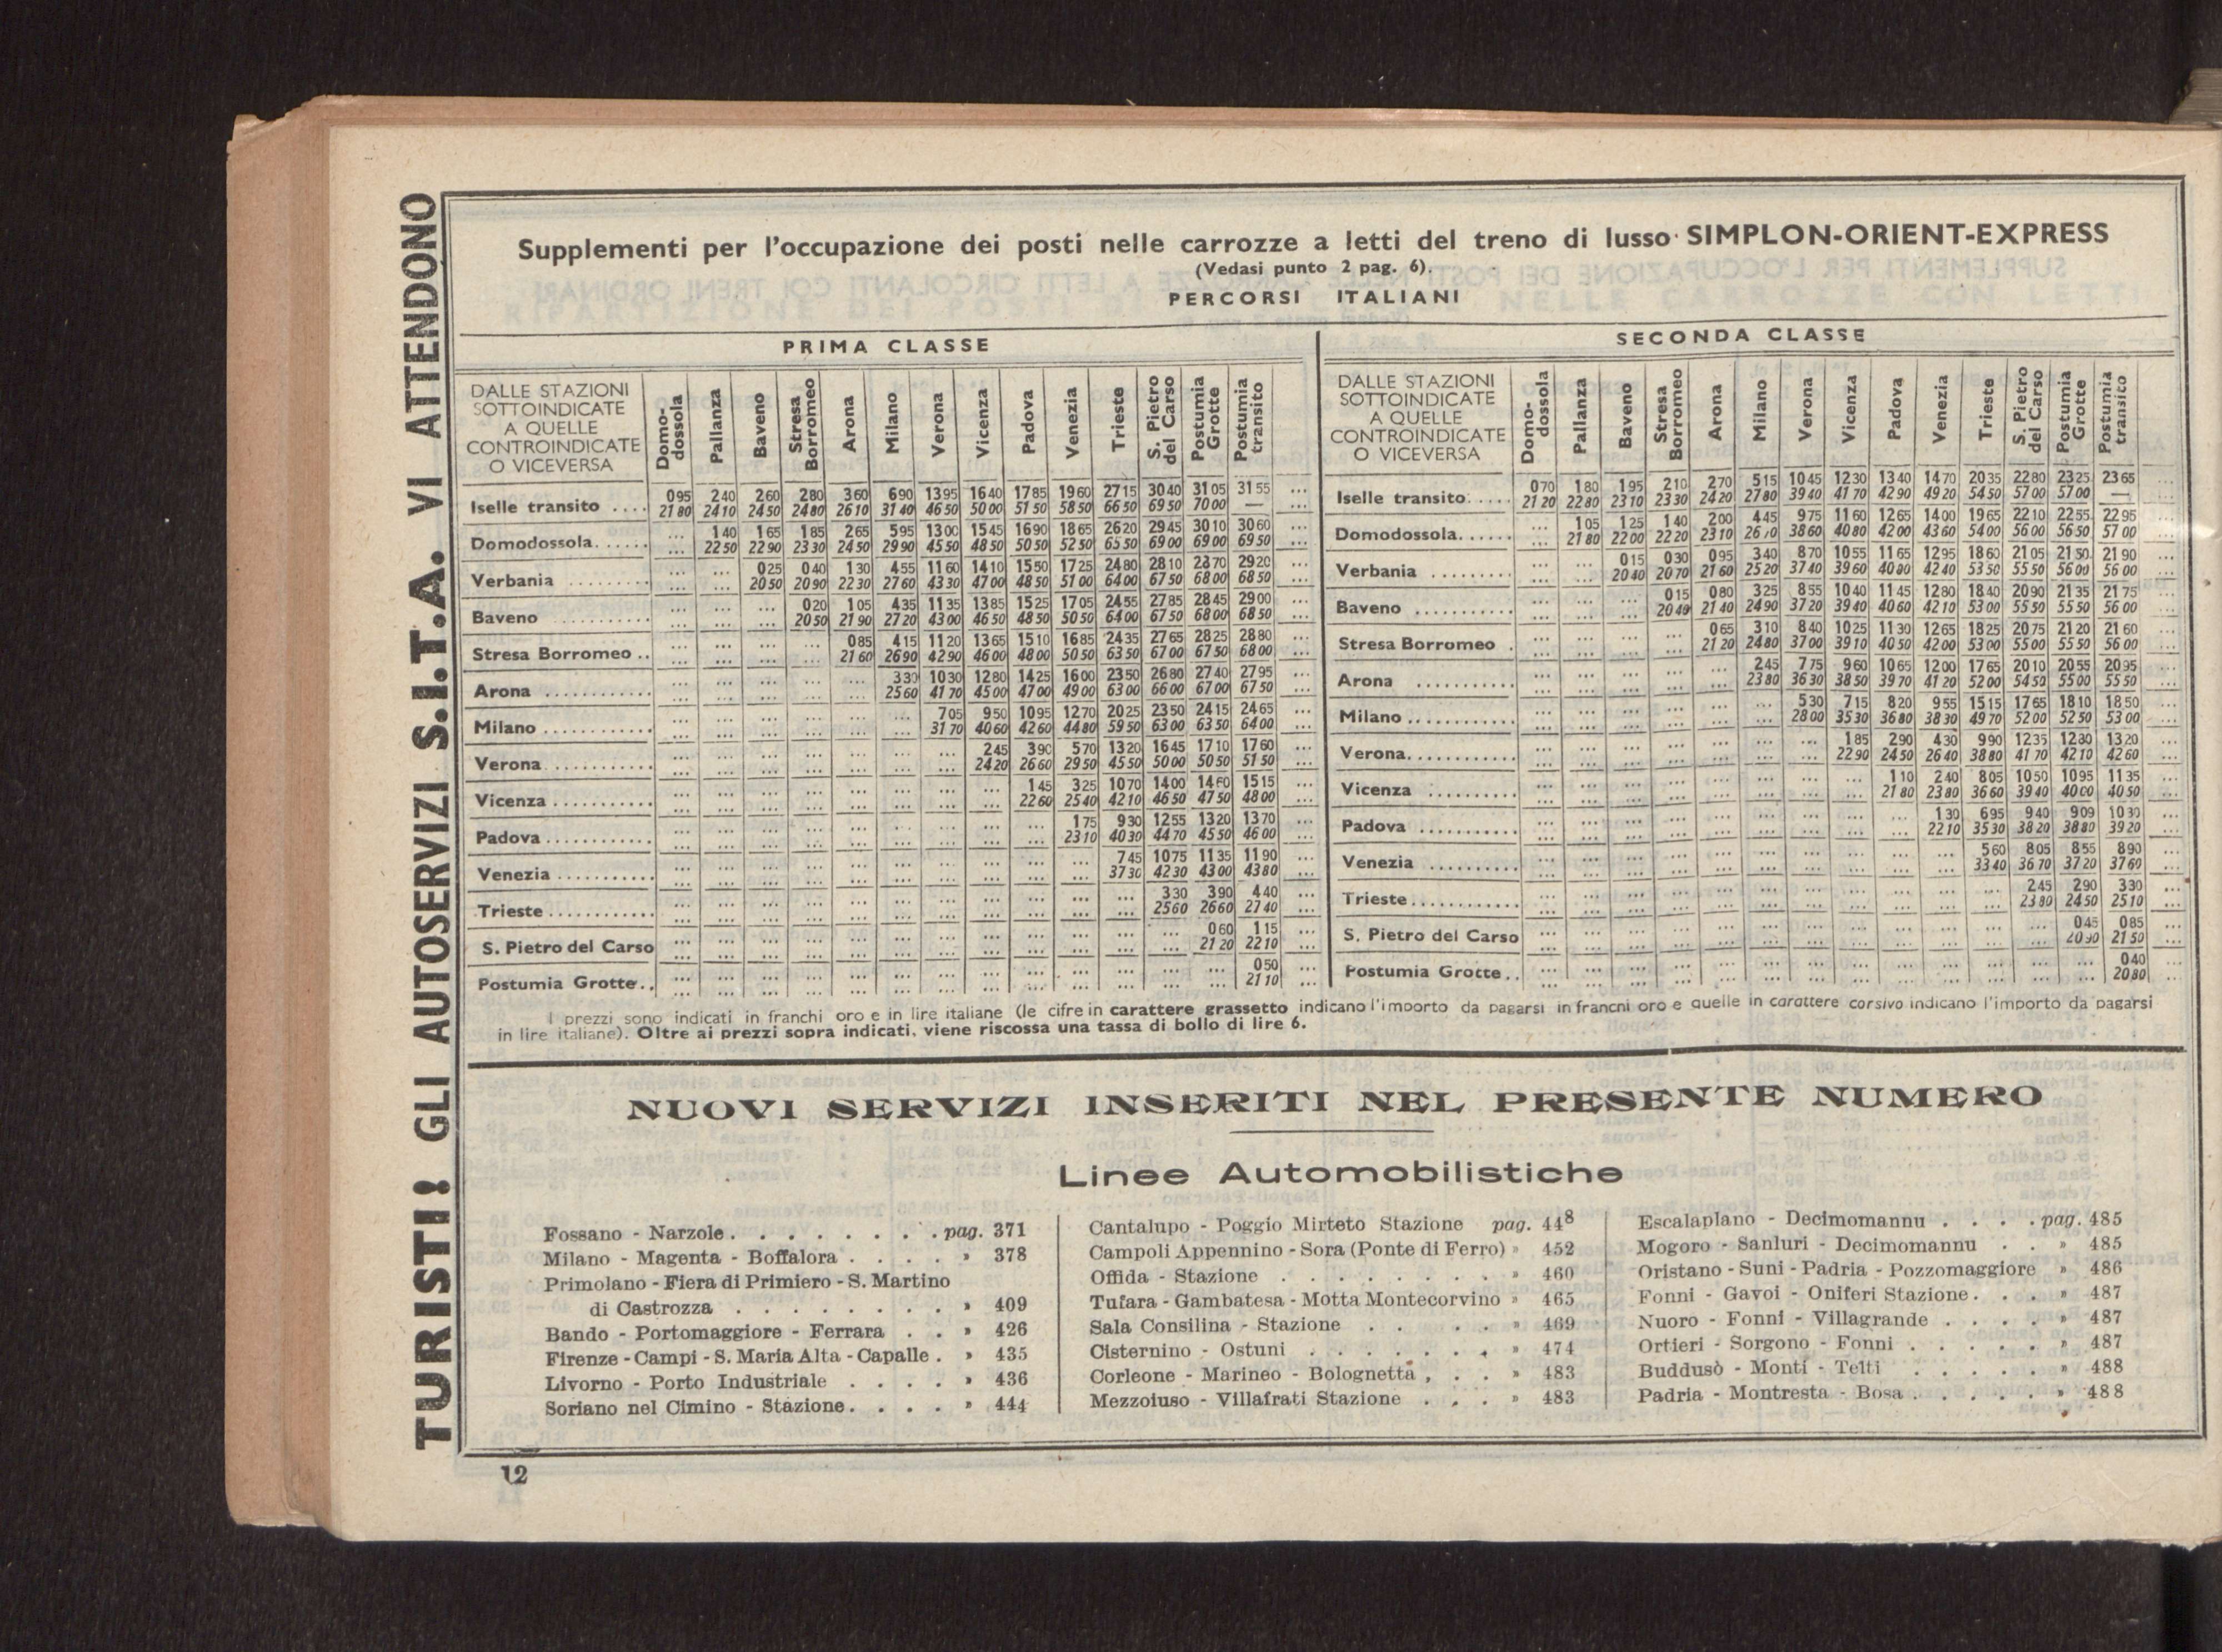 TURISTI! GLI AUTOSERVIZI S.I.T.A. VI ATTENDONO
Supplementi per l'occupazione dei posti nelle carrozze a letti del treno di lusso SIMPLON-ORIENT-EXPRESS
(Vedasi punto 2 pag. 6).
PERCORSI ITALIANI
PRIMA CLASSE
DALLE STAZIONI SOTTOINDICATE A QUELLE CONTROINDICATE O VICEVERSA | Domodossola | Pallanza | Baveno | Stresa Borromeo | Arona | Milano | Verona | Vicenza | Padova | Venezia | Trieste | S. Pietro del Carso | Postumia Grotte | Postumia transito
Iselle transito .... 095 240 260 280 360 690 1395 1640 1785 1960 2715 3040 3105 3155 ...
2180 2410 2450 2480 2610 3140 4650 5000 5150 5850 6650 6950 7000 — ...
Domodossola...... ... 140 165 185 265 595 1300 1545 1690 1865 2620 2945 3010 3060 ...
... 2250 2290 2330 2450 2990 4550 4850 5050 5250 6550 6900 6900 6950 ...
Verbania ......... ... ... 025 040 130 455 1160 1410 1550 1725 2480 2810 2870 2920 ...
... ... 2050 2090 2230 2760 4330 4700 4850 5100 6400 6750 6800 6850 ...
Baveno ........... ... ... ... 020 105 435 1135 1385 1525 1705 2455 2785 2845 2900 ...
... ... ... 2050 2190 2720 4300 4650 4850 5050 6400 6750 6800 6850 ...
Stresa Borromeo .. ... ... ... ... 085 415 1120 1365 1510 1685 2435 2765 2825 2880 ...
... ... ... ... 2160 2690 4290 4600 4800 5050 6350 6700 6750 6800 ...
Arona ........... ... ... ... ... ... 330 1030 1280 1425 1600 2350 2680 2740 2795 ...
... ... ... ... ... 2560 4170 4500 4700 4900 6300 6600 6700 6750 ...
Milano ............ ... ... ... ... ... ... 705 950 1095 1270 2025 2350 2415 2465 ...
... ... ... ... ... ... 3170 4060 4260 4480 5950 6300 6350 6400 ...
Verona............ ... ... ... ... ... ... ... 245 390 570 1320 1645 1710 1760 ...
... ... ... ... ... ... ... 2420 2660 2950 4550 5000 5050 5150 ...
Vicenza ........... ... ... ... ... ... ... ... ... 145 325 1070 1400 1460 1515 ...
... ... ... ... ... ... ... ... 2260 2540 4210 4650 4750 4800 ...
Padova............ ... ... ... ... ... ... ... ... ... 175 930 1255 1320 1370 ...
... ... ... ... ... ... ... ... ... 2310 4030 4470 4550 4600 ...
Venezia ........... ... ... ... ... ... ... ... ... ... ... 745 1075 1135 1190 ...
... ... ... ... ... ... ... ... ... ... 3730 4230 4300 4380 ...
Trieste............ ... ... ... ... ... ... ... ... ... ... ... 330 390 440 ...
... ... ... ... ... ... ... ... ... ... ... 2560 2660 2740 ...
S. Pietro del Carso ... ... ... ... ... ... ... ... ... ... ... ... 060 115 ...
... ... ... ... ... ... ... ... ... ... ... ... 2120 2210 ...
Postumia Grotte.. ... ... ... ... ... ... ... ... ... ... ... ... ... 050 ...
... ... ... ... ... ... ... ... ... ... ... ... ... 2110 ...
SECONDA CLASSE
DALLE STAZIONI SOTTOINDICATE A QUELLE CONTROINDICATE O VICEVERSA | Domodossola | Pallanza | Baveno | Stresa Borromeo | Arona | Milano | Verona | Vicenza | Padova | Venezia | Trieste | S. Pietro del Carso | Postumia Grotte | Postumia transito
Iselle transito..... 070 180 195 210 270 515 1045 1230 1340 1470 2035 2280 2325 2365 ...
2120 2280 2310 2330 2420 2780 3940 4170 4290 4920 5450 5700 5700 — ...
Domodossola...... ... 105 125 140 200 445 975 1160 1265 1400 1965 2210 2255 2295 ...
... 2180 2200 2220 2310 2670 3860 4080 4200 4360 5400 5600 5650 5700 ...
Verbania ......... ... ... 015 030 095 340 870 1055 1165 1295 1860 2105 2150 2190 ...
... ... 2040 2070 2160 2520 3740 3960 4080 4240 5350 5550 5600 5600 ...
Baveno ........... ... ... ... 015 080 325 855 1040 1145 1280 1840 2090 2135 2175 ...
... ... ... 2040 2140 2490 3720 3940 4060 4210 5300 5550 5550 5600 ...
Stresa Borromeo . ... ... ... ... 065 310 840 1025 1130 1265 1825 2075 2120 2160 ...
... ... ... ... 2120 2480 3700 3910 4050 4200 5300 5500 5550 5600 ...
Arona .......... ... ... ... ... ... 245 775 960 1065 1200 1765 2010 2055 2095 ...
... ... ... ... ... 2380 3630 3850 3970 4120 5200 5450 5500 5550 ...
Milano ............ ... ... ... ... ... ... 530 715 820 955 1515 1765 1810 1850 ...
... ... ... ... ... ... 2800 3530 3680 3830 4970 5200 5250 5300 ...
Verona............ ... ... ... ... ... ... ... 185 290 430 990 1235 1280 1320 ...
... ... ... ... ... ... ... 2290 2450 2640 3880 4170 4210 4260 ...
Vicenza .......... ... ... ... ... ... ... ... ... 110 240 805 1050 1095 1135 ...
... ... ... ... ... ... ... ... 2180 2380 3660 3940 4000 4050 ...
Padova ........... ... ... ... ... ... ... ... ... ... 130 695 940 909 1030 ...
... ... ... ... ... ... ... ... ... 2210 3530 3820 3880 3920 ...
Venezia .......... ... ... ... ... ... ... ... ... ... ... 560 805 855 890 ...
... ... ... ... ... ... ... ... ... ... 3340 3670 3720 3760 ...
Trieste............ ... ... ... ... ... ... ... ... ... ... ... 245 290 330 ...
... ... ... ... ... ... ... ... ... ... ... 2380 2450 2510 ...
S. Pietro del Carso ... ... ... ... ... ... ... ... ... ... ... ... 045 085 ...
... ... ... ... ... ... ... ... ... ... ... ... 2090 2150 ...
Postumia Grotte.. ... ... ... ... ... ... ... ... ... ... ... ... ... 040 ...
... ... ... ... ... ... ... ... ... ... ... ... ... 2080 ...
I prezzi sono indicati in franchi oro e in lire italiane (le cifre in carattere grassetto indicano l'importo da pagarsi in franchi oro e quelle in carattere corsivo indicano l'importo da pagarsi
in lire italiane). Oltre ai prezzi sopra indicati, viene riscossa una tassa di bollo di lire 6.
NUOVI SERVIZI INSERITI NEL PRESENTE NUMERO
Linee Automobilistiche
Fossano - Narzole . . . . . . . . pag. 371
Milano - Magenta - Boffalora . . . . » 378
Primolano - Fiera di Primiero - S. Martino
di Castrozza . . . . . . . . » 409
Bando - Portomaggiore - Ferrara . . » 426
Firenze - Campi - S. Maria Alta - Capalle . » 435
Livorno - Porto Industriale . . . . » 436
Soriano nel Cimino - Stazione . . . . » 444
Cantalupo - Poggio Mirteto Stazione pag. 448
Campoli Appennino - Sora (Ponte di Ferro) » 452
Offida - Stazione . . . . . . . . » 460
Tufara - Gambatesa - Motta Montecorvino » 465
Sala Consilina - Stazione . . . . » 469
Cisternino - Ostuni . . . . . . . » 474
Corleone - Marineo - Bolognetta , . . » 483
Mezzoiuso - Villafrati Stazione . . . » 483
Escalaplano - Decimomannu . . . . pag. 485
Mogoro - Sanluri - Decimomannu . . » 485
Oristano - Suni - Padria - Pozzomaggiore » 486
Fonni - Gavoi - Oniferi Stazione . . . » 487
Nuoro - Fonni - Villagrande . . . . » 487
Ortieri - Sorgono - Fonni . . . . . » 487
Buddusò - Monti - Telti . . . . . » 488
Padria - Montresta - Bosa . . . . . » 488
12